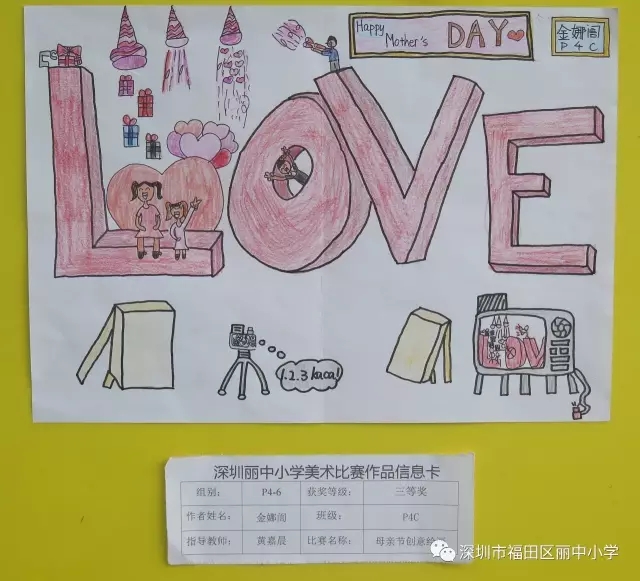 Happy
Mother's DAY
金娜阁
P4C
LOVE
1.2.3 kaca!
LOV
深圳丽中小学美术比赛作品信息卡
组别： P4-6 获奖等级： 三等奖
作者姓名： 金娜阁 班级： P4C
指导教师： 黄嘉晨 比赛名称： 母亲节创意绘
深圳市福田区丽中小学